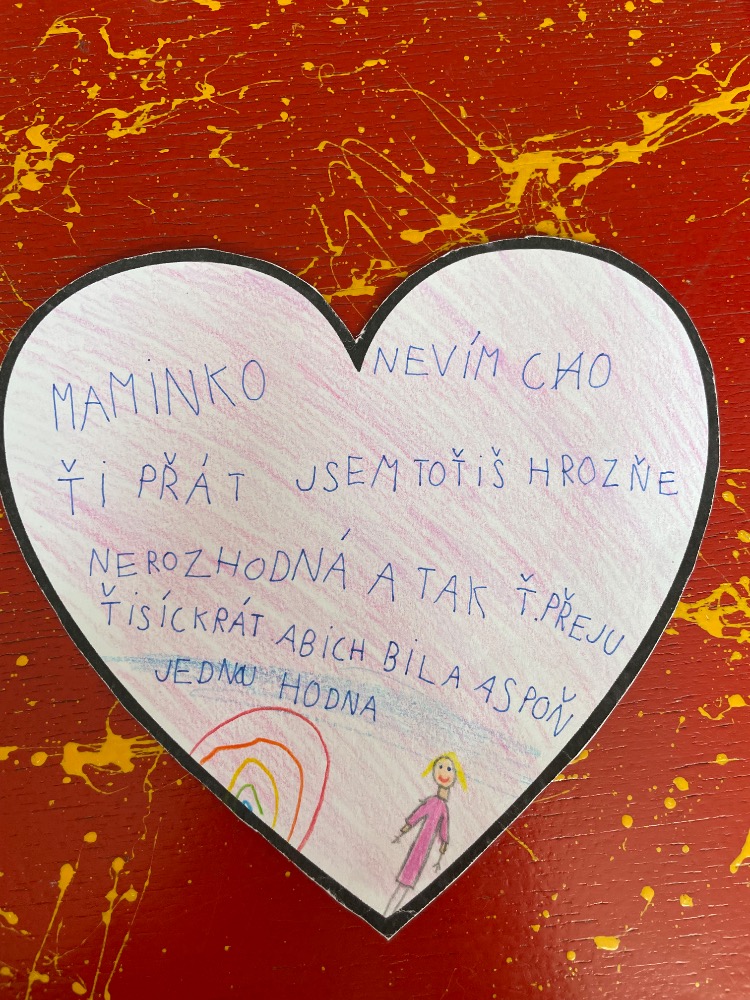 MAMINKO NEVÍM CHO
ŤI PŘÁT JSEM TOŤIŠ HROZŇE
NEROZHODNÁ A TAK Ť. PŘEJU
ŤISÍCKRÁT ABICH BILA ASPOŇ
JEDNOU HODNA